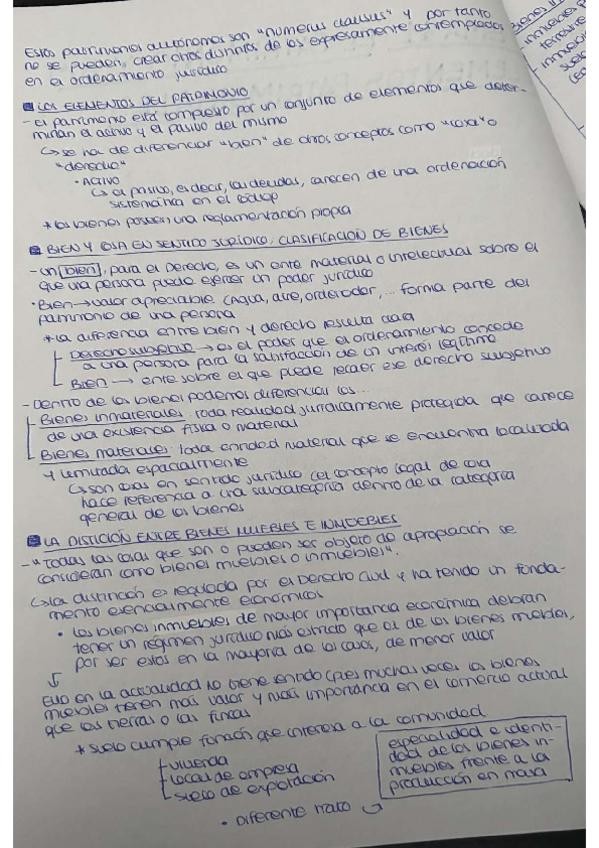 Estos patrimonios autónomos son "numerus clausus" y por tanto
no se pueden crear otros distintos de los expresamente contemplados
en el ordenamiento jurídico
LOS ELEMENTOS DEL PATRIMONIO
- El patrimonio está compuesto por un conjunto de elementos que deter-
minan el activo y el pasivo del mismo
↳ se ha de diferenciar "bien" de otros conceptos como "cosa" o
"derecho"
• ACTIVO
↳ el pasivo, es decir, las deudas, carecen de una ordenación
sistemática en el código
* los bienes poseen una reglamentación propia
BIEN Y COSA EN SENTIDO JURÍDICO: CLASIFICACIÓN DE BIENES
- un bien, para el Derecho, es un ente material o intelectual sobre el
que una persona puede ejercer un poder jurídico
• Bien → valor apreciable (Agua, aire, ordenador, ... forma parte del
patrimonio de una persona
* la diferencia entre bien y derecho resulta clara
Derecho subjetivo → es el poder que el ordenamiento concede
a una persona para la satisfacción de un interés legítimo
Bien → ente sobre el que puede recaer ese derecho subjetivo
- Dentro de los bienes podemos diferenciar los...
Bienes inmateriales: toda realidad jurídicamente protegida que carece
de una existencia física o material
Bienes materiales: toda entidad material que se encuentra localizada
y limitada espacialmente
↳ son cosas en sentido jurídico (el concepto legal de cosa
hace referencia a una subcategoría dentro de la categoría
general de los bienes
LA DISTICIÓN ENTRE BIENES MUEBLES E INMUEBLES
- "Todas las cosas que son o pueden ser objeto de apropiación se
consideran como bienes muebles o inmuebles".
↳ la distinción es regulada por el Derecho Civil y ha tenido un funda-
mento esencialmente económicos
• los bienes inmuebles de mayor importancia económica debían
tener un régimen jurídico más estricto que el de los bienes muebles,
por ser estos en la mayoría de los casos, de menor valor
Ello en la actualidad no tiene sentido (pues muchas veces los bienes
muebles tienen más valor y más importancia en el comercio actual
que las tierras o las fincas
* suelo cumple función que interesa a la comunidad
vivienda
local de empresa
suelo de explotación
especialidad e identi-
dad de los bienes in-
muebles frente a la
producción en masa
• Diferente trato